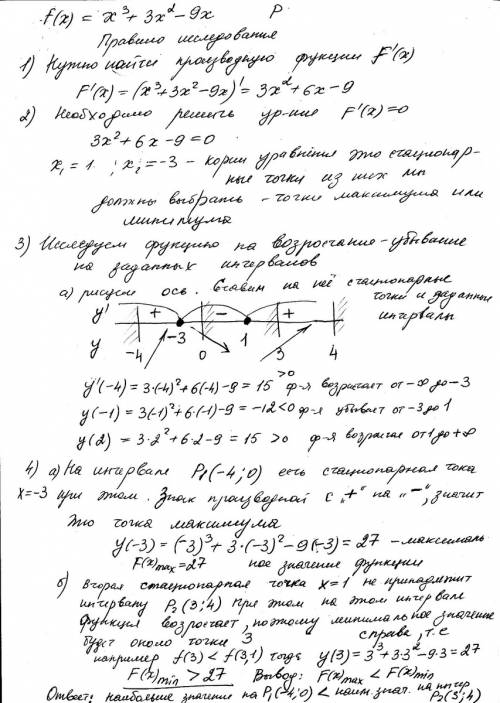 f(x) = x³ + 3x² - 9x P
Правило исследования
1) Нужно найти производную функции F'(x)
F'(x) = (x³+3x²-9x)' = 3x²+6x-9
2) Необходимо решить ур-ние F'(x)=0
3x²+6x-9=0
x₁=1 ; x₂=-3 - корни уравнения это стационар-
ные точки из них мы
должны выбрать - точки максимума или
минимума
3) Исследуем функцию на возростание-убывание
на заданных интервалов
а) рисуем ось. Ставим на неё стационарные
точки и заданные
интервалы
y' + - +
-3 1
y -4 0 3 4
y'(-4) = 3·(-4)²+6(-4)-9 = 15 >0 ф-я возрастает от -∞ до -3
y(-1) = 3(-1)²+6·(-1)-9 = -12<0 ф-я убывает от -3 до 1
y(2) = 3·2²+6·2-9 = 15 >0 ф-я возрастает от 1 до +∞
4) а) На интервале P₁(-4;0) есть стационарная точка
x=-3 при этом. Знак производной с "+" на "-", значит
это точка максимума
y(-3) = (-3)³+3·(-3)²-9(-3) = 27 - максималь
F(x)max=27 ное значение функции
б) Вторая стационарная точка x=1 не принадлежит
интервалу P₂(3;4) при этом на этом интервале
функция возрастает, поэтому минимальное значение
будет около точки 3 справа, т.е
например f(3) < f(3,1) тогда y(3) = 3³+3·3²-9·3=27
F(x)min > 27 Вывод: F(x)max < F(x)min
Ответ: наибольшее значение на P₁(-4;0) < наим.знач. на интер
P₂(3;4)